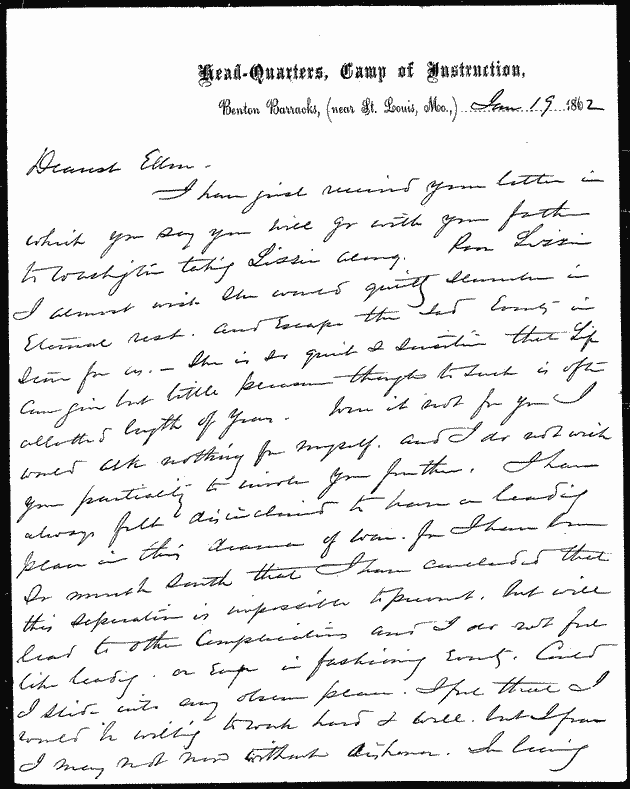 Head-Quarters, Camp of Instruction,
Benton Barracks, (near St. Louis, Mo.,) Jan 19 1862
Dearest Ellen -
I have just received your letter in
which you say you will go with your father
to Washington taking Lizzie along. Poor Lizzie
I almost wish she would quietly slumber in
Eternal rest. and Escape the sad Events in
Store for us. - She is so quiet & sensitive that Life
Can give but little pleasure though to such is often
allotted length of years. Were it not for you I
would ask nothing for myself. and I do not wish
your partiality to involve you further. I have
always felt disinclined to have a leading
place in this drama of war. for I have been
So much South that I have concluded that
this separation is impossible to prevent. but will
lead to other Complications and I do not feel
like leading. or Even in fashioning Events. Could
I slide into any obscure place. I feel that I
would be willing to work hard & well. but I fear
I may not now without dishonor. In living